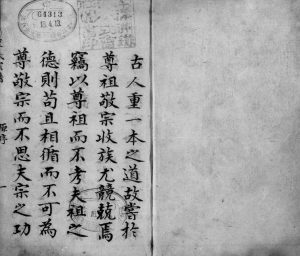 古人重一本之道故嘗於
尊祖敬宗收族尤兢兢焉
竊以尊祖而不考夫祖之
德則苟且相循而不可為
尊敬宗而不思夫宗之功
序
一
64313